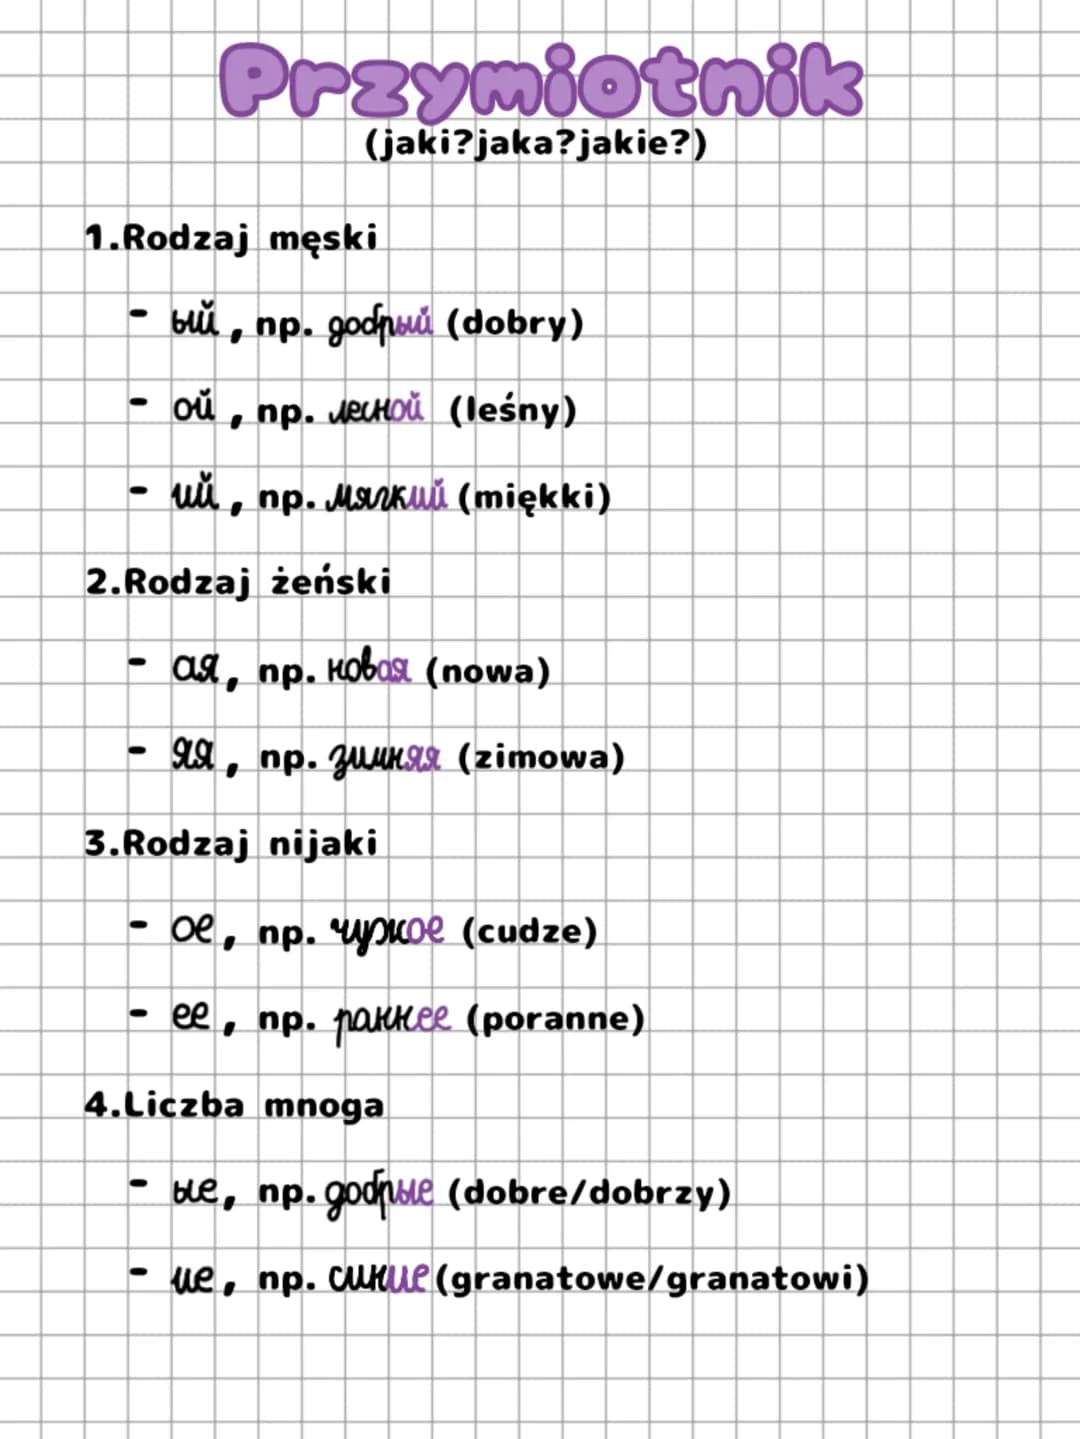 Przymiotnik
(jaki?jaka?jakie?)
1.Rodzaj męski
- ый, np. добрый (dobry)
- ой, np. лесной (leśny)
- ий, np. мягкий (miękki)
2.Rodzaj żeński
- ая, np. новая (nowa)
- яя, np. зимняя (zimowa)
3.Rodzaj nijaki
- ое, np. чужое (cudze)
- ее, np. раннее (poranne)
4.Liczba mnoga
- ые, np. добрые (dobre/dobrzy)
- ие, np. синие (granatowe/granatowi)